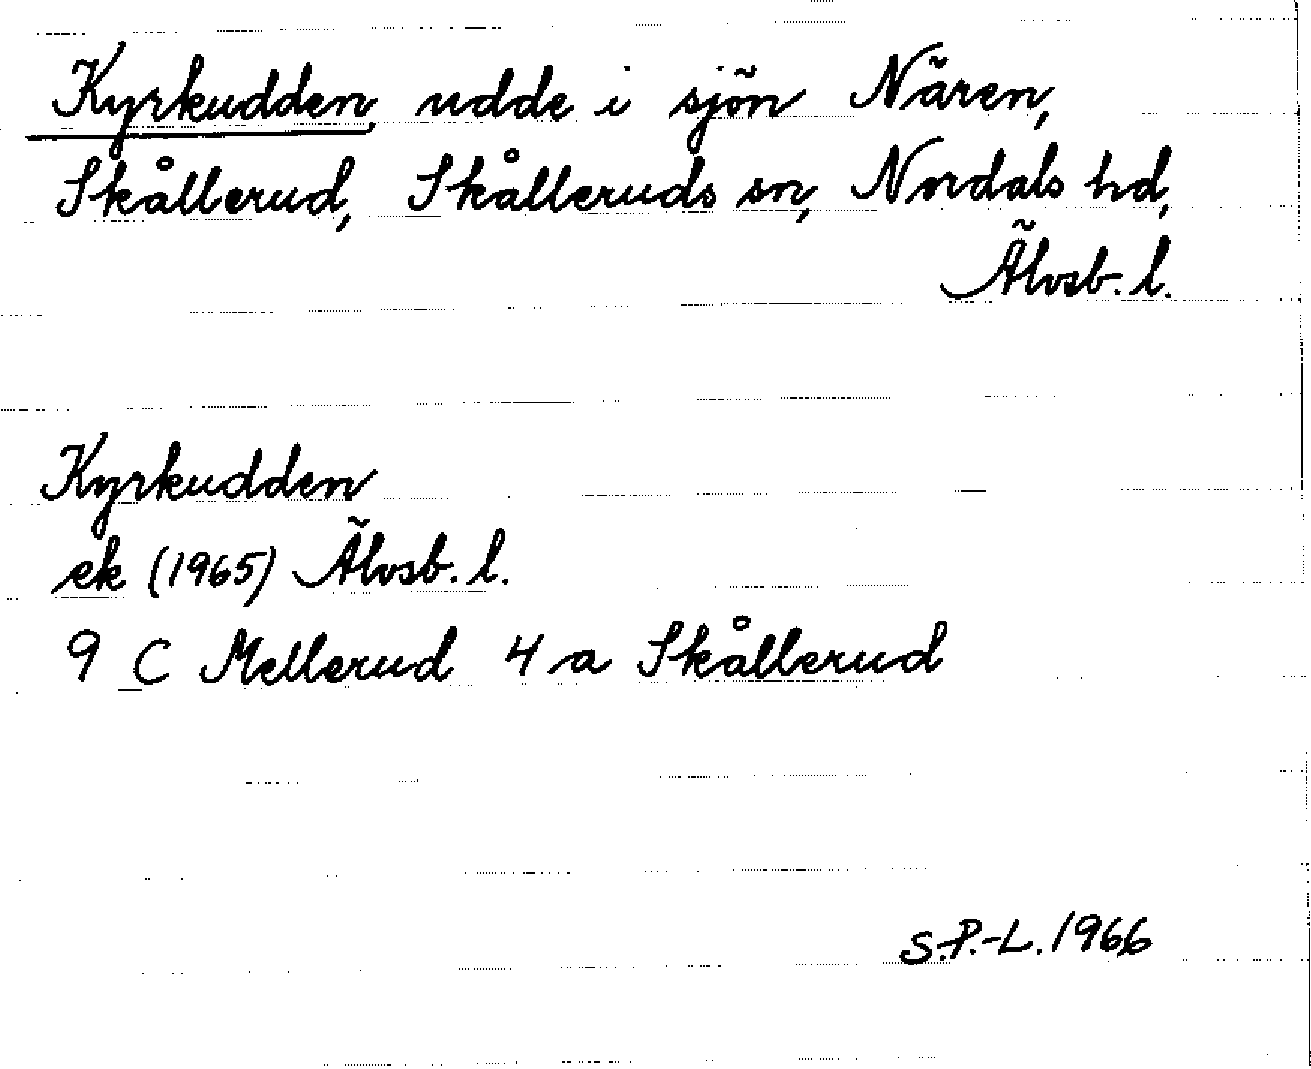 Kyrkudden, udde i sjön Nären,
Skållerud, Skålleruds sn, Nordals hd,
Älvsb. l.
Kyrkudden
ek (1965) Älvsb. l.
9 C Mellerud 4 a Skållerud
S.P.-L. 1966